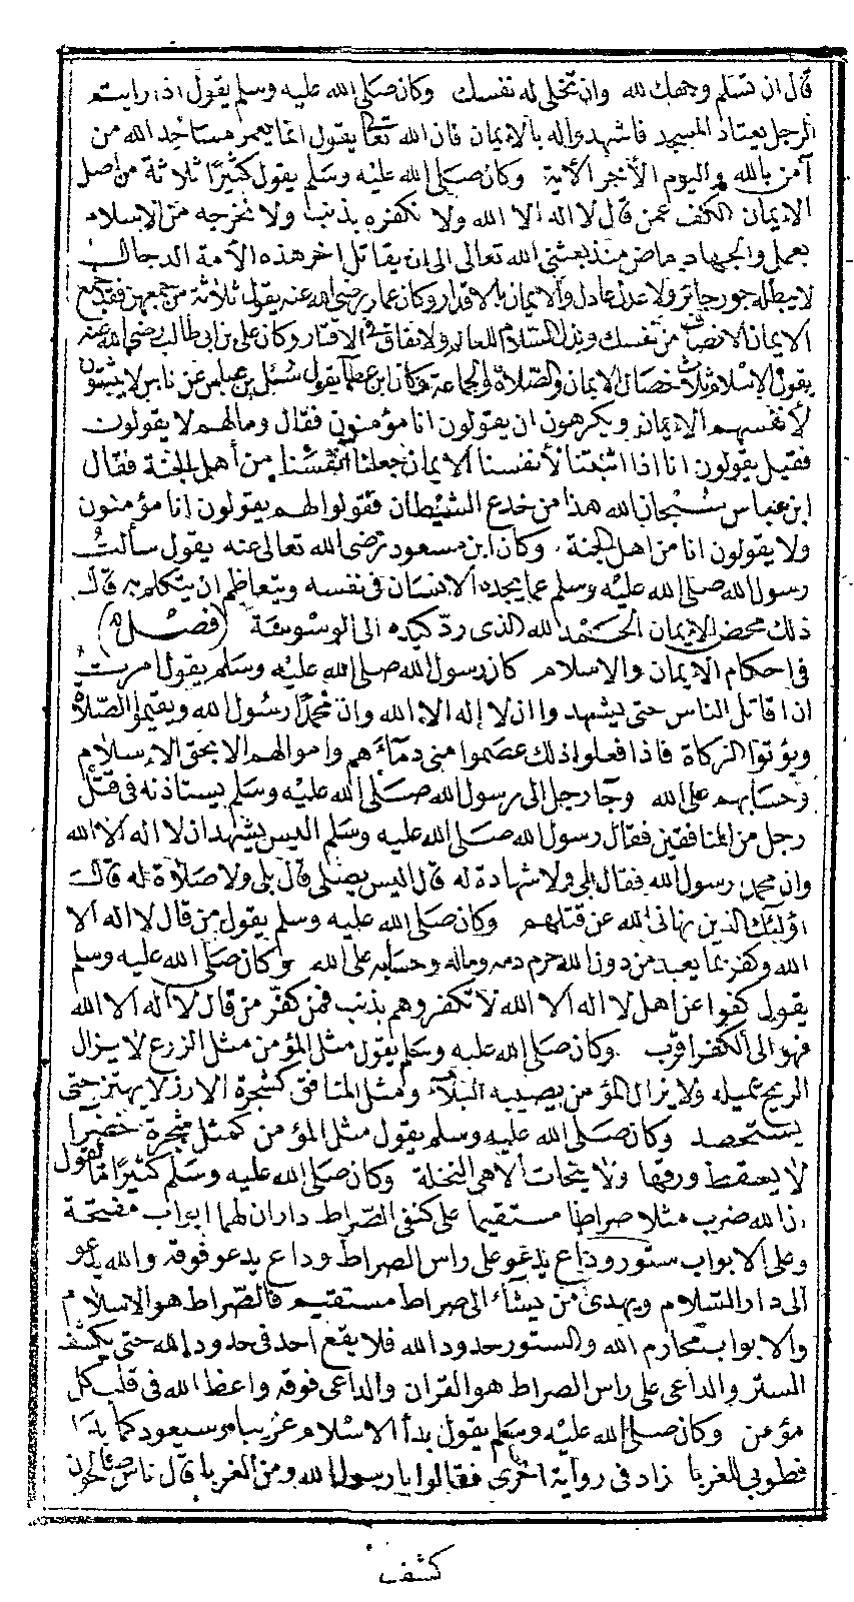 قال ان تسلم وجهك لله وان تخلى له نفسك وكان صلى الله عليه وسلم يقول اذا رايتم
الرجل يعتاد المسجد فاشهدوا له بالايمان فان الله تعالى يقول انما يعمر مساجد الله من
آمن بالله واليوم الآخر الآية وكان صلى الله عليه وسلم يقول كثيرا ثلاثة من اصل
الايمان الكف عمن قال لا اله الا الله ولا نكفره بذنب ولا نخرجه من الاسلام
بعمل والجهاد ماض منذ بعثني الله تعالى الى ان يقاتل اخر هذه الامة الدجال
لا يبطله جور جائر ولا عدل عادل والايمان بالاقدار وكان عمار رضى الله عنه يقول ثلاثة من جمعهن فقد جمع
الايمان الانصاف من نفسك وبذل السلام للعالم والانفاق في الاقتار وكان على بن ابى طالب رضى الله عنه
يقول الاسلام ثلاث خصال الايمان والصلاة والجماعة وكان ابن عطا يقول سئل بن عباس عن ناس لا يثبتون
لأنفسهم الايمان ويكرهون ان يقولون انا مؤمنون فقال وما لهم لا يقولون
فقيل يقولون انا اذا اثبتنا لأنفسنا الايمان جعلنا أنفسنا من أهل الجنة فقال
ابن عباس سبحان الله هذا من خدع الشيطان فقولوا لهم يقولون انا مؤمنون
ولا يقولون انا من اهل الجنة وكان ابن مسعود رضى الله تعالى عنه يقول سألت
رسول الله صلى الله عليه وسلم عما يجده الانسان فى نفسه ويتعاظم ان يتكلم به قال
ذلك محض الايمان الحمد لله الذى رد كيده الى الوسوسة (فصل)
فى احكام الايمان والاسلام كان رسول الله صلى الله عليه وسلم يقول امرت
ان اقاتل الناس حتى يشهدوا ان لا إله الا الله وان محمدا رسول الله ويقيموا الصلاة
ويؤتوا الزكاة فاذا فعلوا ذلك عصموا منى دماءهم واموالهم الا بحق الاسلام
وحسابهم على الله وجا رجل الى رسول الله صلى الله عليه وسلم يستاذنه فى قتل
رجل من المنافقين فقال رسول الله صلى الله عليه وسلم اليس يشهد ان لا اله الا الله
وان محمد رسول الله فقال بلى ولا شهادة له قال اليس يصلى قال بلى ولا صلاة له قال
اولئك الذين نهانى الله عن قتلهم وكان صلى الله عليه وسلم يقول من قال لا اله الا
الله وكفر بما يعبد من دون الله حرم دمه وماله وحسابه على الله وكان صلى الله عليه وسلم
يقول كفوا عن اهل لا اله الا الله لا تكفروهم بذنب فمن كفر من قال لا اله الا الله
فهو الى الكفر اقرب وكان صلى الله عليه وسلم يقول مثل المؤمن مثل الزرع لا يزال
الريح تميله ولا يزال المؤمن يصيبه البلاء ومثل المنافق كشجرة الارز لا يهتز حتى
يستحصد وكان صلى الله عليه وسلم يقول مثل المؤمن كمثل شجرة خضرا
لا يسقط ورقها ولا يتحات ألا هى النخلة وكان صلى الله عليه وسلم كثيرا ما يقول
ان الله ضرب مثلا صراطا مستقيما على كنفى الصراط داران لهما ابواب مفتحة
وعلى الابواب ستور وداع يدعو على راس الصراط وداع يدعو فوقه والله يدعو
الى دار السلام ويهدى من يشاء الى صراط مستقيم فالصراط هو الاسلام
والابواب محارم الله والستور حدود الله فلا يقع احد فى حدود الله حتى يكشف
الستر والداعى على راس الصراط هو القران والداعى فوقه واعظ الله فى قلب كل
مؤمن وكان صلى الله عليه وسلم يقول بدأ الاسلام غريبا وسيعود كما بدا
فطوبى للغربا زاد فى رواية اخرى فقالوا يا رسول الله ومن الغربا قال ناس صالحون
كشف